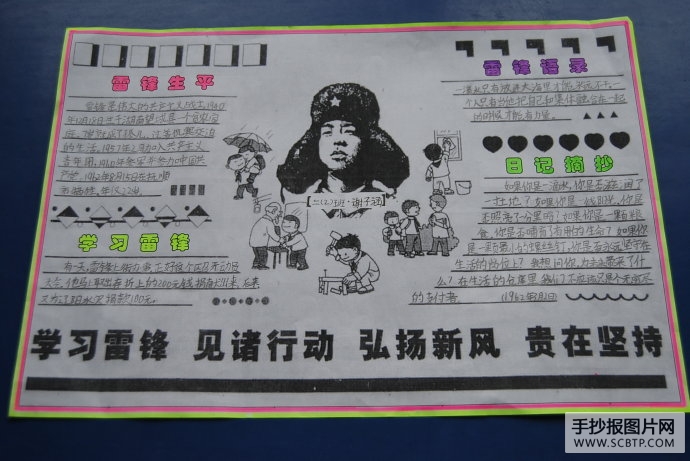 雷锋生平
雷锋是伟大的共产主义战士,1940
年12月18日生于湖南望城县一个贫农家
的生活。1957年2月加入共产主义
青年团,1960年参军并参加中国共
产党。1962年8月15日
年仅22岁。
学习雷锋
大会,他马上取出存折上的200元钱
捐款100元。
【二(2)班:谢子涵】
雷锋语录
一滴水只有放进大海里才能永远不干,一
个人只有当他把自己和集体融合在一起
的时候才能有力量。
日记摘抄
如果你是一滴水,你是否滋润了
一寸土地?如果你是一线阳光,你是
否照亮了一分黑暗?如果你是一颗粮
食,你是否哺育了有用的生命?如果你
是一颗最小的螺丝钉,你是否永远坚守在
生活的岗位上?
么?在生活的仓库里,我们不应该只是个无穷尽
的支付者。
学习雷锋 见诸行动 弘扬新风 贵在坚持
手抄报图片网
WWW.SCBTP.COM